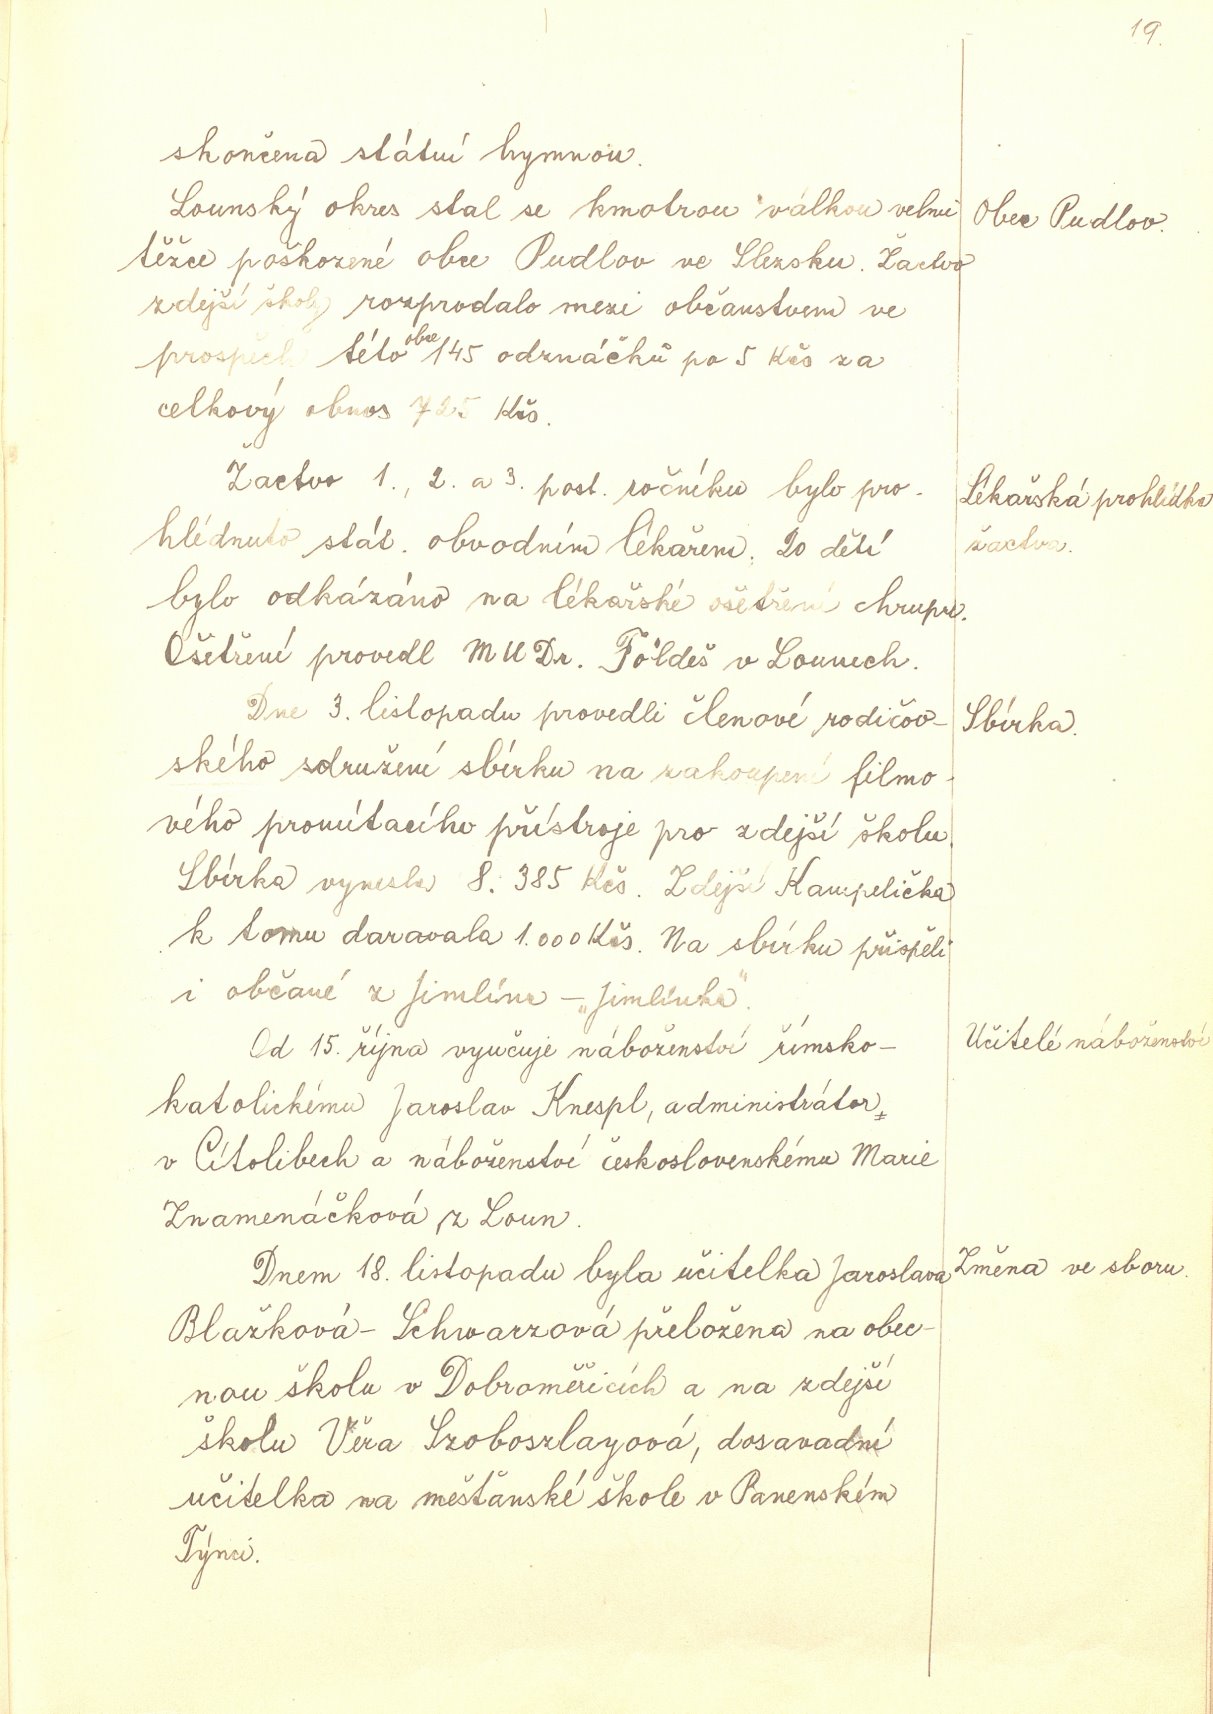 19.
skončena státní hymnou.
Lounský okres stal se kmotrou válkou velmi
Obec Pudlov.
těžce poškozené obce Pudlov ve Slezsku. Žactvo
zdejší školy rozprodalo mezi občanstvem ve
prospěch této obce 145 odznáčků po 5 Kčs za
celkový obnos 725 Kčs.
Žactvo 1., 2. a 3. post. ročníku bylo pro-
Lékařská prohlídka
hlédnuto stát. obvodním lékařem. 20 dětí
žactva.
bylo odkázáno na lékařské ošetření chrupu.
Ošetření provedl MUDr. Földeš v Lounech.
Dne 3. listopadu provedli členové rodičov-
Sbírka.
ského sdružení sbírku na zakoupení filmo-
vého promítacího přístroje pro zdejší školu.
Sbírka vynesla 8.385 Kčs. Zdejší Kampelička
k tomu daravala 1.000 Kčs. Na sbírku přispěli
i občané z Jimlína – „Jimlínka".
Od 15. října vyučuje náboženství římsko-
Učitelé náboženství
katolickému Jaroslav Knespl, administrátor
v Cítolibech a náboženství československému Marie
Znamenáčková z Loun.
Dnem 18. listopadu byla učitelka Jaroslava
Změna ve sboru.
Blažková – Schwarzová přeložena na obec-
nou školu v Dobroměřicích a na zdejší
školu Věra Szoboszlayová, dosavadní
učitelka na měšťanské škole v Panenském
Týnci.